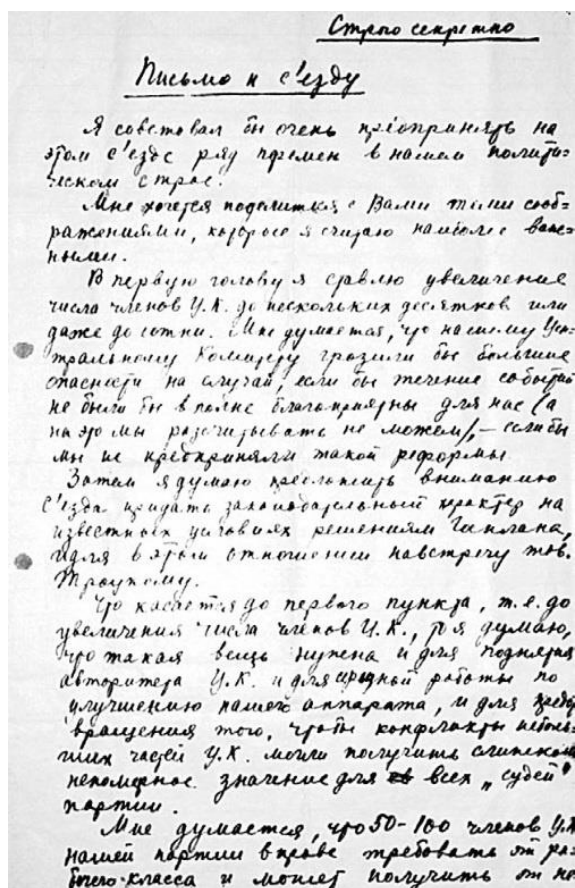 Строго секретно
Письмо к с'езду
Я советовал бы очень предпринять на
этом с'езде ряд перемен в нашем полити-
ческом строе.
Мне хочется поделиться с Вами теми сооб-
ражениями, которые я считаю наиболее важ-
ными.
В первую голову я ставлю увеличение
числа членов Ц.К. до нескольких десятков или
даже до сотни. Мне думается, что нашему Цен-
тральному Комитету грозили бы большие
опасности на случай, если бы течение событий
не были бы вполне благоприятны для нас (а
на это мы рассчитывать не можем), – если бы
мы не предприняли такой реформы.
Затем я думаю предложить вниманию
с'езда придать законодательный характер на
известных условиях решениям Госплана,
идя в этом отношении навстречу тов.
Троцкому.
Что касается до первого пункта, т.е. до
увеличения числа членов Ц.К., то я думаю,
что такая вещь нужна и для поднятия
авторитета Ц.К. и для работы по
улучшению нашего аппарата, и для предот-
вращения того, чтобы конфликты неболь-
ших частей Ц.К. могли получить слишком
непомерное значение для всех „судеб"
партии.
Мне думается, что 50-100 членов Ц.К.
наша партии вправе требовать от ра-
бочего класса и может получить от не